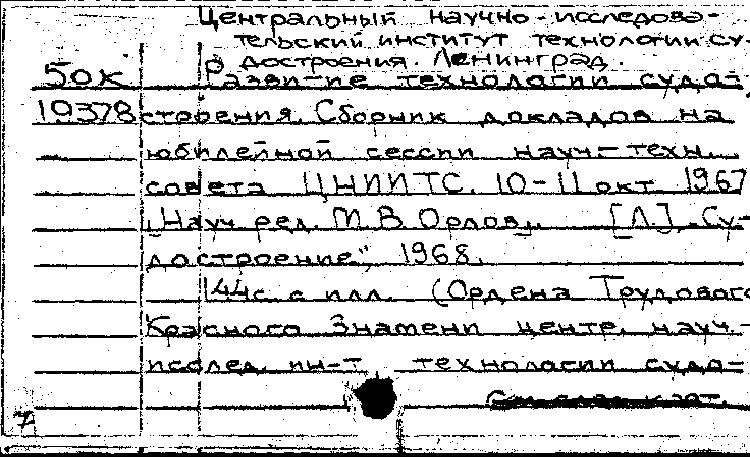 Центральный научно-исследова-
тельский институт технологии су-
достроения. Ленинград.
50К Развитие технологии судо-
19378 строения. Сборник докладов на
юбилейной сессии науч.-техн.
совета ЦНИИТС. 10-11 окт. 1967
[Науч. ред. М. В. Орлов]. [Л.], „Су-
достроение", 1968.
144 с. с илл. (Ордена Трудового
Красного Знамени центр. науч.-
исслед. ин-т технологии судо-
7